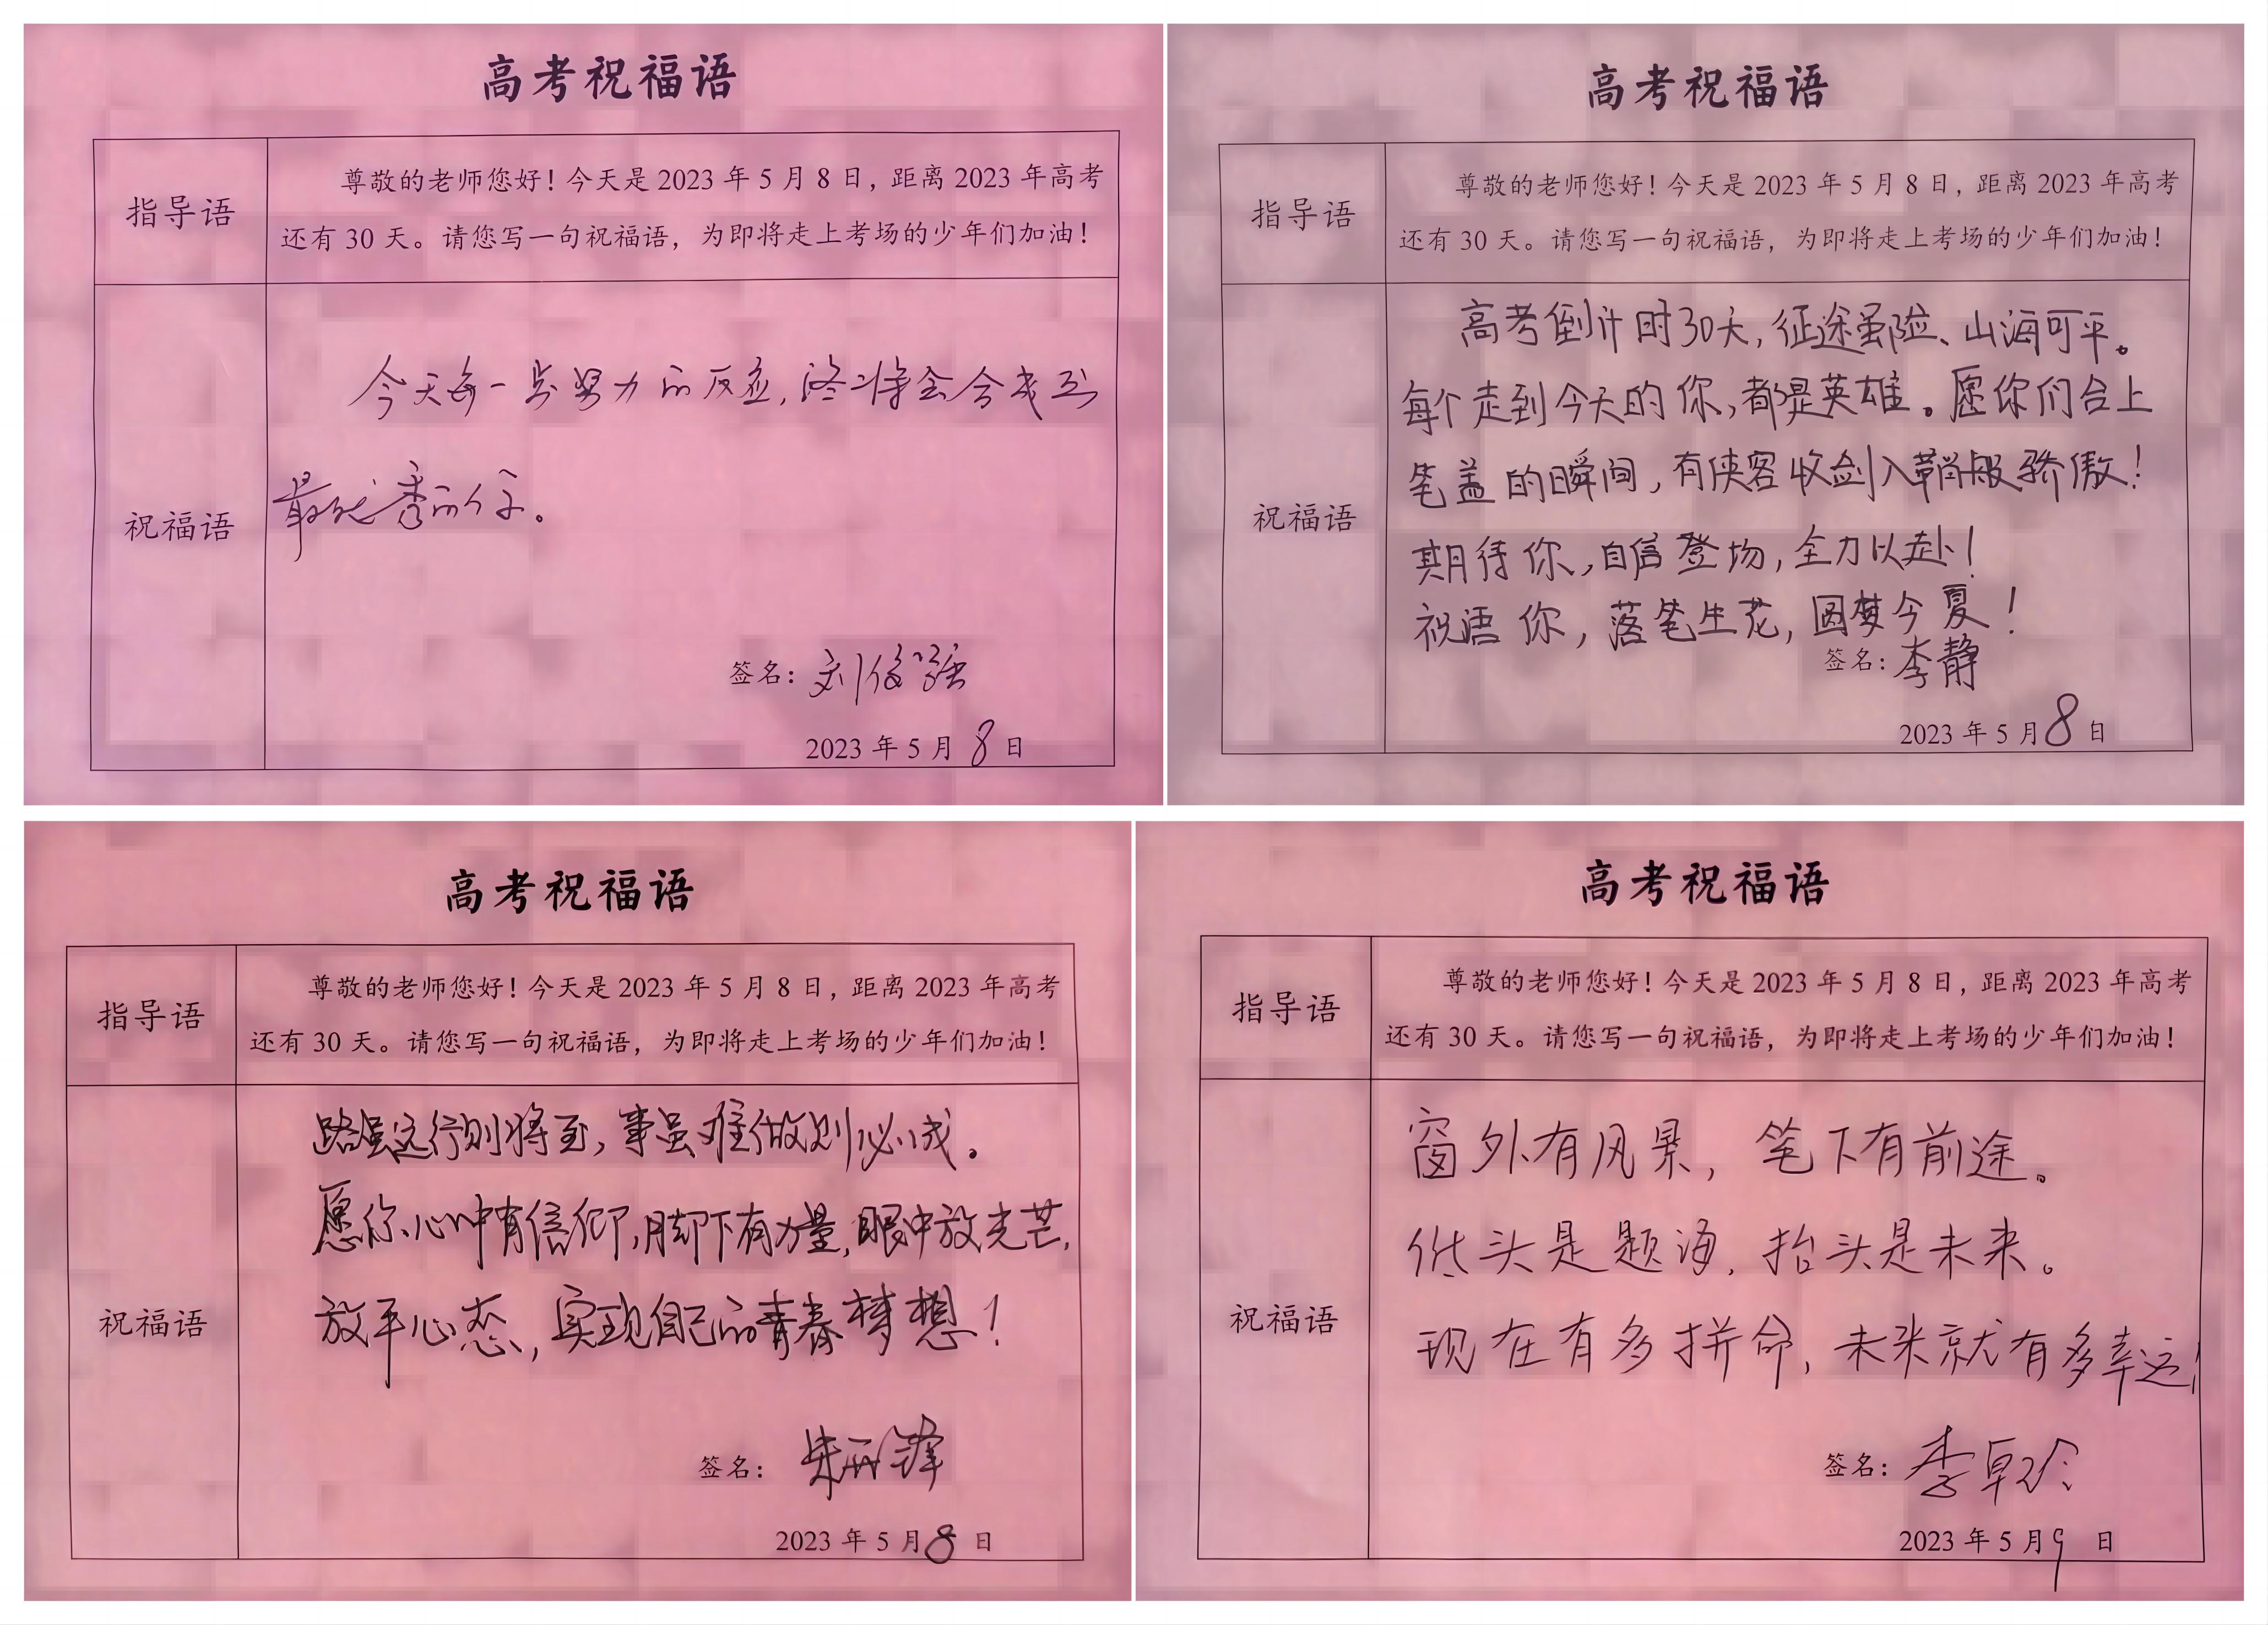 高考祝福语
指导语
尊敬的老师您好！今天是 2023 年 5 月 8 日，距离 2023 年高考
还有 30 天。请您写一句祝福语，为即将走上考场的少年们加油！
祝福语
今天每一步努力的反应，终将会合成到
最优秀的你。
签名：刘俊强
2023 年 5 月 8 日
高考祝福语
指导语
尊敬的老师您好！今天是 2023 年 5 月 8 日，距离 2023 年高考
还有 30 天。请您写一句祝福语，为即将走上考场的少年们加油！
祝福语
高考倒计时30天，征途虽险、山海可平。
每个走到今天的你，都是英雄。愿你们合上
笔盖的瞬间，有侠客收剑入鞘般骄傲！
期待你，自信登场，全力以赴！
祝语你，落笔生花，圆梦今夏！
签名：李静
2023 年 5 月 8 日
高考祝福语
指导语
尊敬的老师您好！今天是 2023 年 5 月 8 日，距离 2023 年高考
还有 30 天。请您写一句祝福语，为即将走上考场的少年们加油！
祝福语
路虽远行则将至，事虽难做则必成。
愿你心中有信仰，脚下有力量，眼中放光芒，
放平心态，实现自己的青春梦想！
签名：朱
2023 年 5 月 8 日
高考祝福语
指导语
尊敬的老师您好！今天是 2023 年 5 月 8 日，距离 2023 年高考
还有 30 天。请您写一句祝福语，为即将走上考场的少年们加油！
祝福语
窗外有风景，笔下有前途。
低头是题海，抬头是未来。
现在有多拼命，未来就有多幸运！
签名：李卓玲
2023 年 5 月 9 日